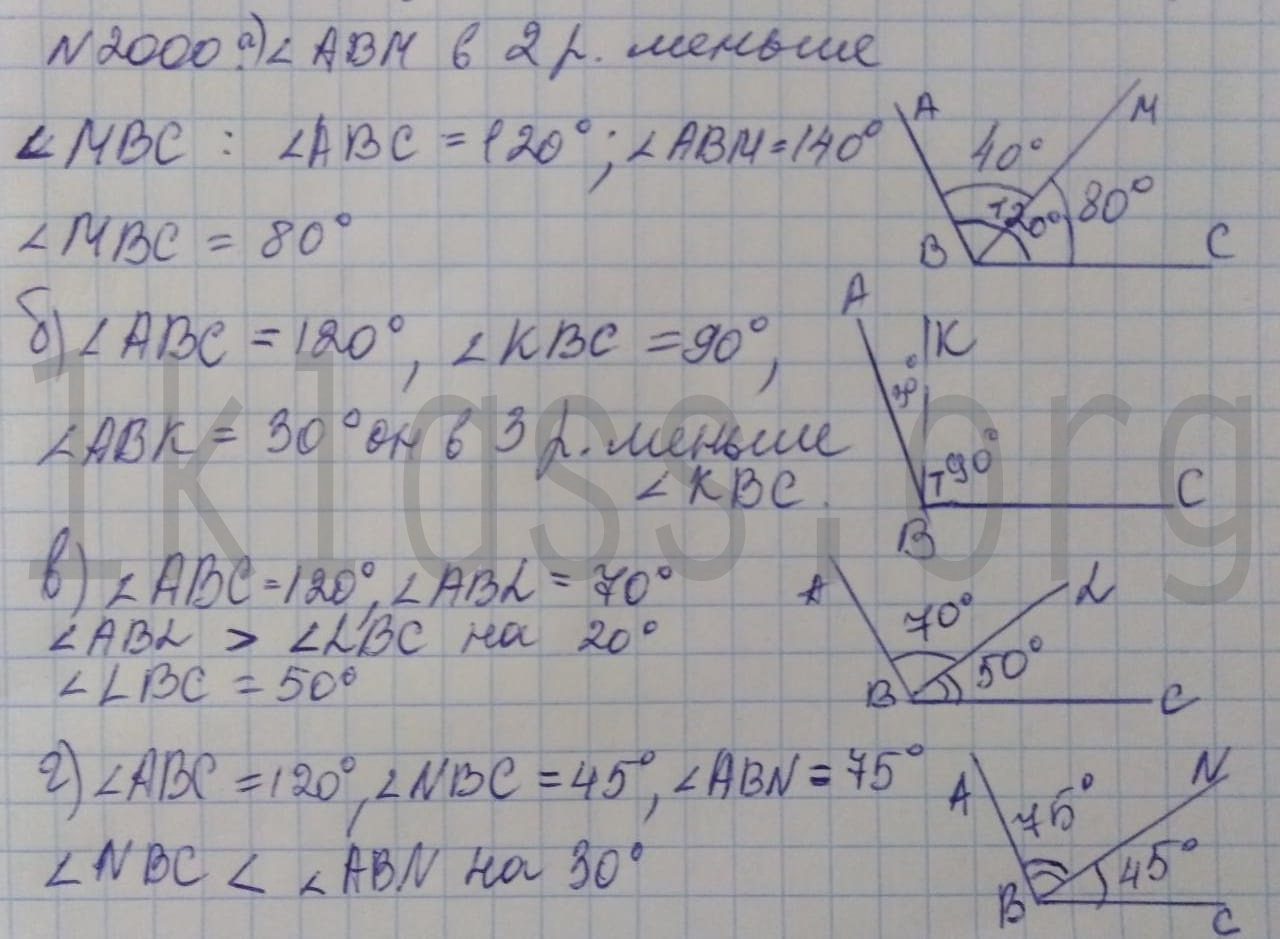 N2000 а) ∠ABM в 2 р. меньше
∠MBC : ∠ABC = 120°; ∠ABM = 140°
∠MBC = 80°
A M
40°
120° 80°
B C
б) ∠ABC = 120°, ∠KBC = 90°,
∠ABK = 30° он в 3 р. меньше
∠KBC.
A K
90°
B C
в) ∠ABC = 120°, ∠ABL = 70°
∠ABL > ∠LBC на 20°
∠LBC = 50°
A L
70°
50°
B C
г) ∠ABC = 120°, ∠NBC = 45°, ∠ABN = 75°
∠NBC < ∠ABN на 30°
A N
75°
45°
B C
1klass.org